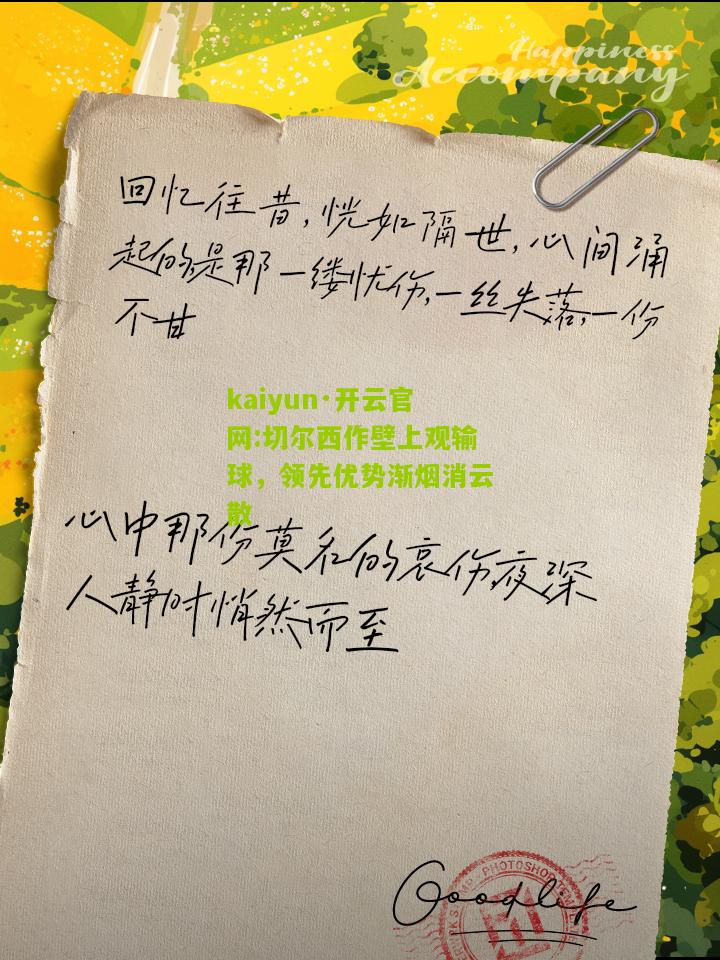 Happiness
Accompany
回忆往昔，恍如隔世，心间涌
起的，是那一缕忧伤，一丝失落，一份
不甘
kaiyun·开云官
网:切尔西作壁上观输
球，领先优势渐烟消云
散
心中那份莫名的哀伤，夜深
人静时悄然而至
Goodlife
PHOTOSHOP